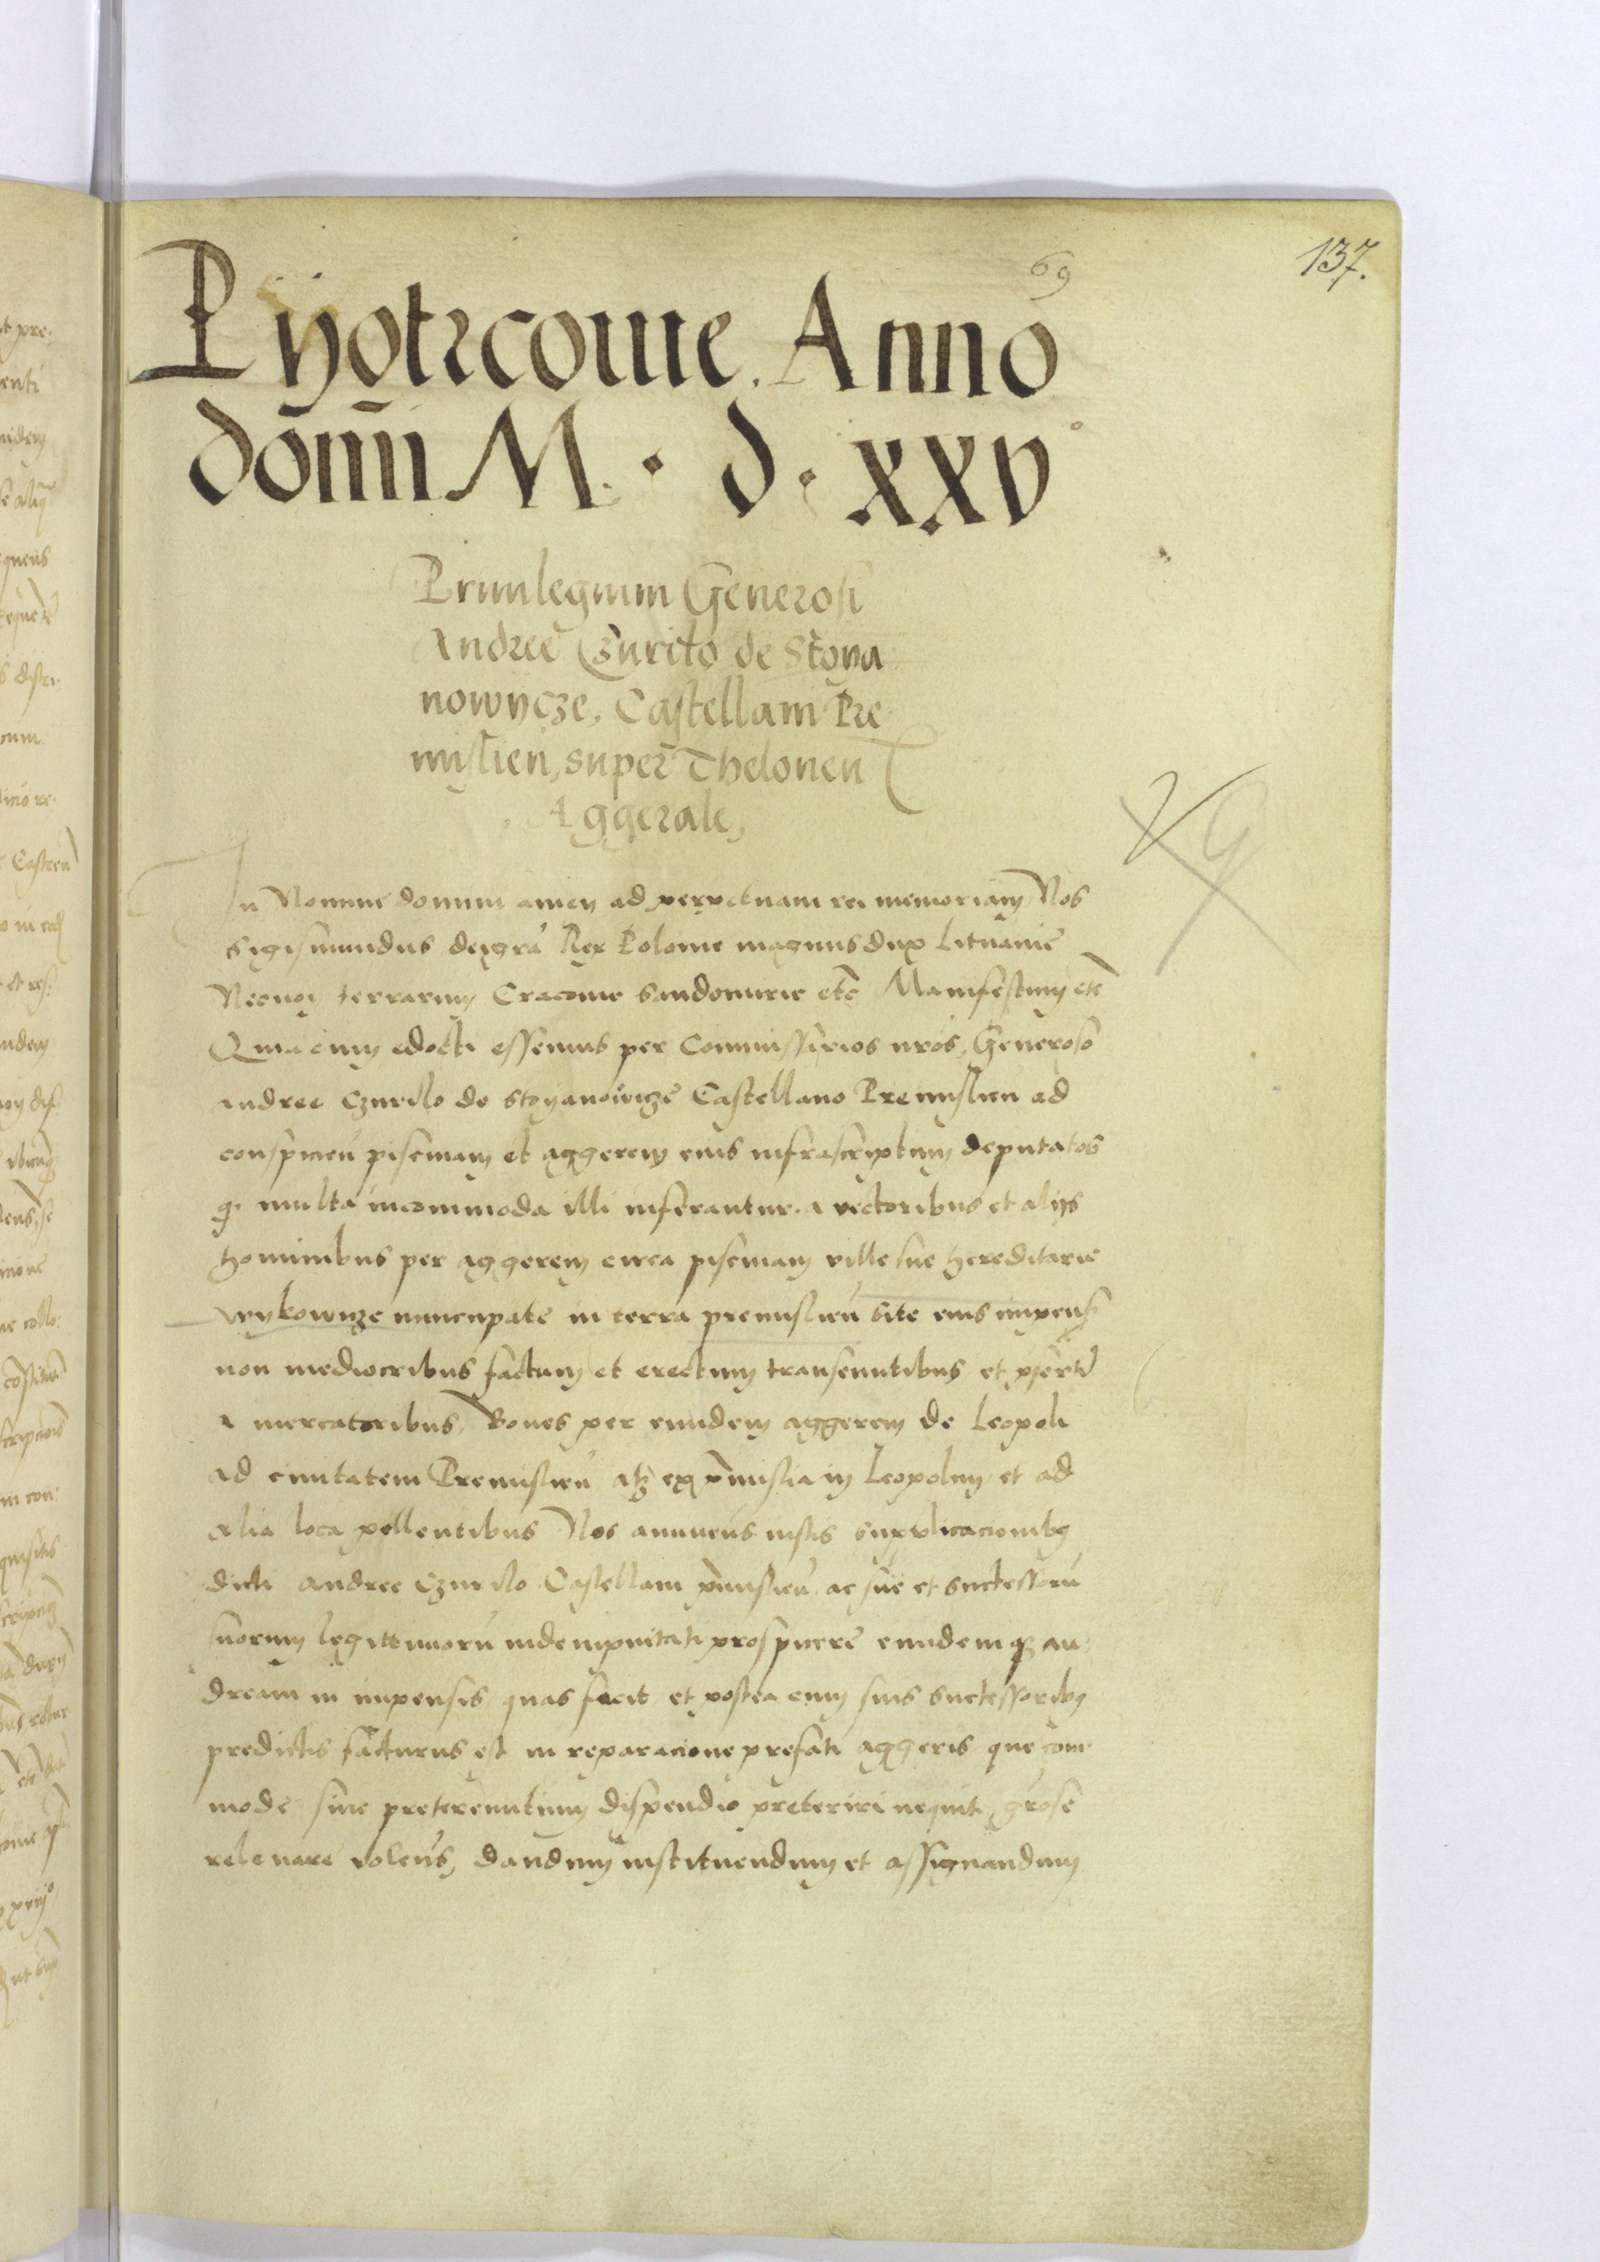 137.
69
Pyotrcovie. Anno
dom̄i M. d. xxv°
Privilegium Generosi
Andree Czurilo de Stoya
nowycze, Castellani Pre
mislien̄, super Theloneu
Aggerale,
In Nomine domini amen ad perpetuam rei memoriam Nos
Sigismundus dei gr̄a Rex Polonie magnus dux Lituanie
Necnon terrarum Cracovie Sandomirie etc̄ Manifestum etc̄
Quia cum edocti essemus per Commissarios nr̄os, Generoso
Andree Czurilo de Stoyanowicze Castellano Premislien̄ ad
conspicien̄ piscinam et aggerem eius infrascriptum deputatos
q̇ multa incommoda illi inferantur. a vectoribus et alijs
hominibus per aggerem circa piscinam ville sue hereditarie
wykowicze nuncupate in terra premislien̄ site eius impens̄
non mediocribus factum et erectum transeuntibus et p̄sertī
a mercatoribus, Boves per eundem aggerem de Leopoli
ad civitatem Premislien̄ atq̄ ex p̄mislia in Leopolim et ad
alia loca pellentibus Nos annuens iustis supplicacionibq
dicti Andree Czurilo Castellani p̄mislien̄ ac sue et successorū
suorum legittimorū indempnitati prospicere eundemqȝ An
dream in impensis quas facit et postea cum suis successoribq
predictis facturus est in reparacione prefati aggeris que com
mode sine pretereuntium dispendio preteriri nequit,
relevare volens, dandum instituendum et assignandum